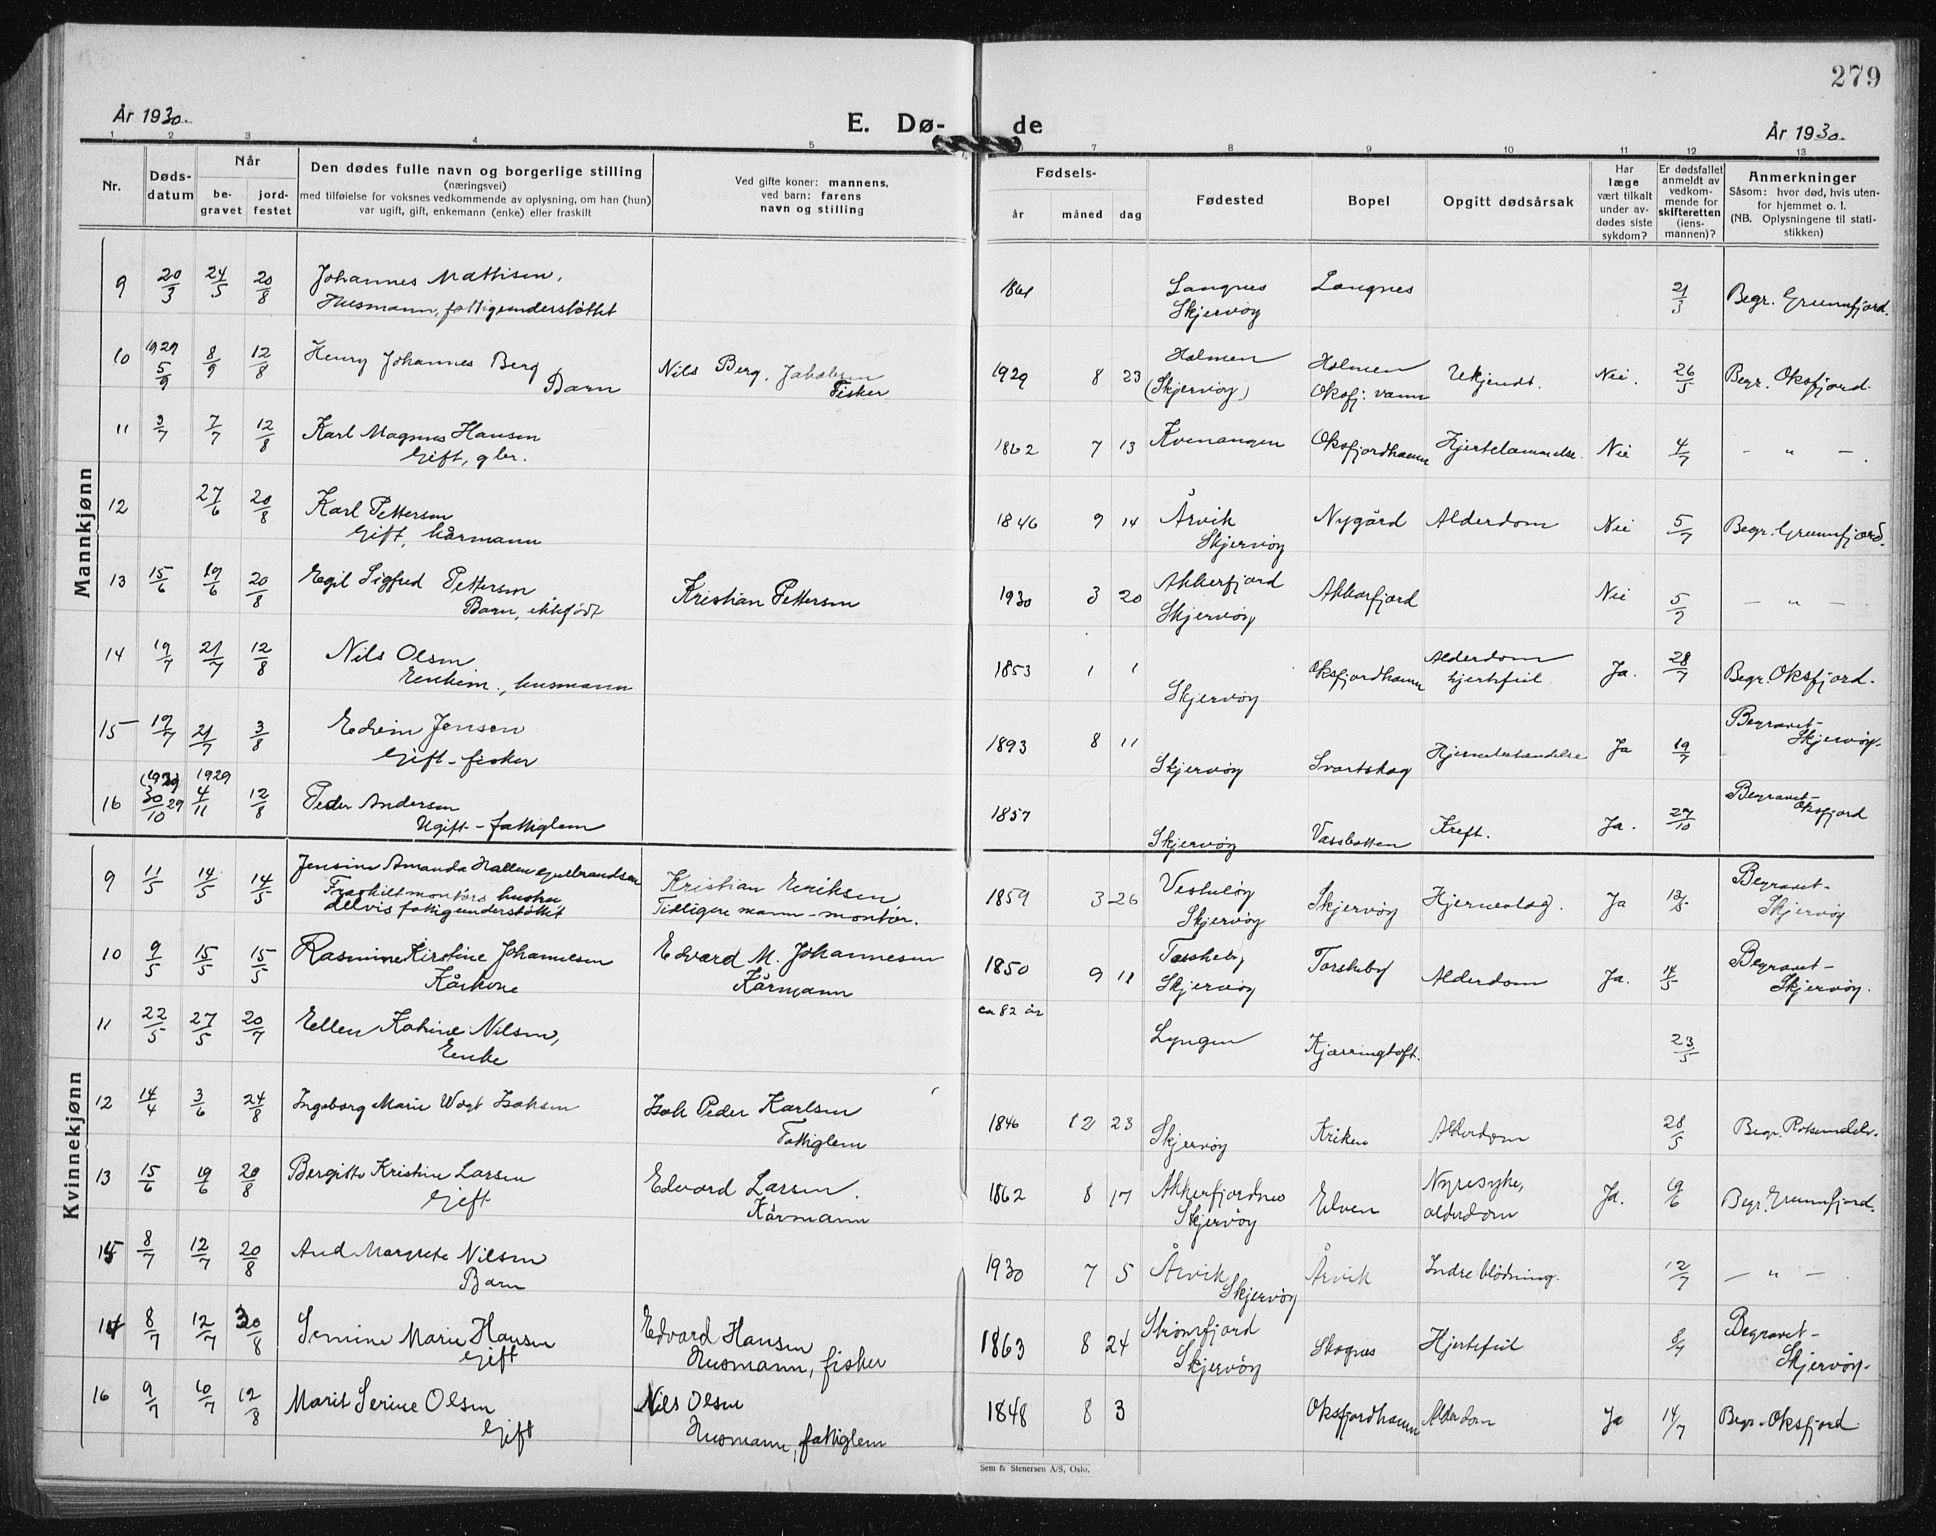 279
År 1930.
E. Dø-
de
År 1930.
1 2 3 4 5 7 8 9 10 11 12 13
Nr.
Døds-
datum
Når
be-
gravet
jord-
festet
Den dødes fulle navn og borgerlige stilling
(næringsvei)
med tilføielse for voksnes vedkommende av oplysning, om han (hun)
var ugift, gift, enkemann (enke) eller fraskilt
Ved gifte koner: mannens,
ved barn: farens
navn og stilling
Fødsels-
år
måned
dag
Fødested
Bopel
Opgitt dødsårsak
Har
læge
vært tilkalt
under av-
dødes siste
sykdom?
Er dødsfallet
anmeldt av
vedkom-
mende for
skifteretten
(lens-
mannen)?
Anmerkninger
Såsom: hvor død, hvis uten-
for hjemmet o. l.
(NB. Oplysningene til stati-
stikken)
Mannkjønn
9 20/3 24/5 20/8 Johannes Mattisen, 1861 Langnes Langnes 21/3 Begr. Grunnfjord.
Husmann, fattigunderstøttet Skjervöy
10 1929 5/9 8/9 12/8 Henry Johannes Berg Nils Berg, Jakobsen 1929 8 23 Holmen Holmen Ukjendt. Nei. 26/5 Begr. Oksfjord.
Barn Fisker (Skjervöy) Oksfj: vann
11 3/7 7/7 12/8 Karl Magnus Hansen 1862 7 13 Kvenangen Oksfjordhamn Hjertelammelse. Nei 4/7 - " -.
Gift, gbr.
12 27/6 20/8 Karl Pettersen 1846 9 14 Årvik Nygård Alderdom Nei 5/7 Begr. Grunnfjord.
Gift, kårmann Skjervöy
13 15/6 19/6 20/8 Egil Sigfred Pettersen Kristian Pettersen 1930 3 20 Akkerfjord Akkarfjord Nei 5/7 - " -
Barn, ektefødt Skjervöy
14 19/7 21/7 12/8 Nils Olsen 1853 1 1 Skjervöy Oksfjordhamn Alderdom Ja. 28/7 Begr. Oksfjord.
Enkem., husmann hjertefeil.
15 19/7 21/7 3/8 Edvin Jensen 1893 8 11 Skjervöy Svartskog Ja 19/7 Begravet-
Gift - fisker Skjervöy.
16 (1929) 30/10 29 1929 4/11 12/8 Peder Andersen 1857 Skjervöy Vassbotten Kreft. Ja. 27/10 Begravet-
Ugift - fattiglem Oksfjord
Kvinnekjønn
9 11/5 14/5 14/5 Jensine Amanda Kristian Eriksen 1859 3-26 Skjervöy Hjerneslag. Ja 13/5 Begravet-
Fraskilt montørs hustru Tidligere mann - montør. Skjervöy Skjervöy
delvis fattigunderstøttet
10 9/5 15/5 15/5 Rasmine Kirstine Johannesen Edvard M. Johannesen 1850 9 11 Taskeby Torskeby Alderdom Ja. 14/5 Begravet-
Kårkone Kårmann Skjervöy Skjervöy.
11 22/5 27/5 20/7 Ellen Katrine Nilsen, ca 82 år Lyngen Kjerringtoft. 23/5
Enke
12 14/4 3/6 24/8 Ingeborg Marie Wogt Isaksen Isak Peder Karlsen 1846 12 23 Skjervöy Kriken Alderdom 28/5 Begr. Rotsundelv.
Fattiglem
13 15/6 19/6 20/8 Bergitte Kristine Larsen Edvard Larsen. 1862 8 17 Akkerfjordnes Elven Nyresyke, Ja. 19/6 Begr. Grunnfjord.
Gift Kårmann Skjervöy alderdom
15 8/7 12/7 20/8 Aud Margrete Nilsen 1930 7 5 Årvik Årvik Indre blödning. 12/7 - " -.
Barn Skjervöy
14 8/7 12/7 20/8 Semine Marie Hansen Edvard Hansen 1863 8 24 Strömfjord Skognes Hjertefeil 8/7 Begravet-
Gift Husmann, fisker Skjervöy Skjervöy.
16 9/7 10/7 12/8 Marit Serine Olsen Nils Olsen 1848 8 3 Oksfjordhamn Alderdom Ja 14/7 Begr. Oksfjord.
Gift Husmann, fattiglem
Sem & Stenersen A/S, Oslo.